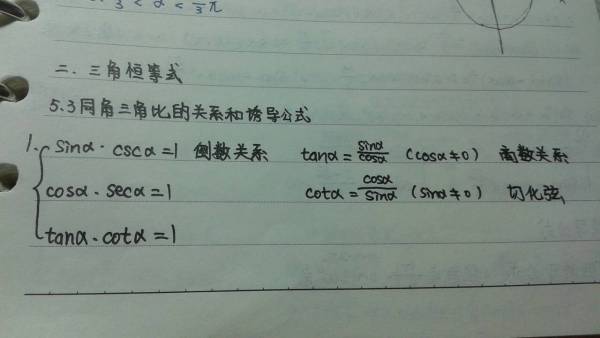 3 < α < π/3
二. 三角恒等式
5.3同角三角比的关系和诱导公式
1. sinα · cscα = 1 倒数关系 tanα = sinα/cosα (cosα≠0) 商数关系
cosα · secα = 1 cotα = cosα/sinα (sinα≠0) 切化弦
tanα · cotα = 1